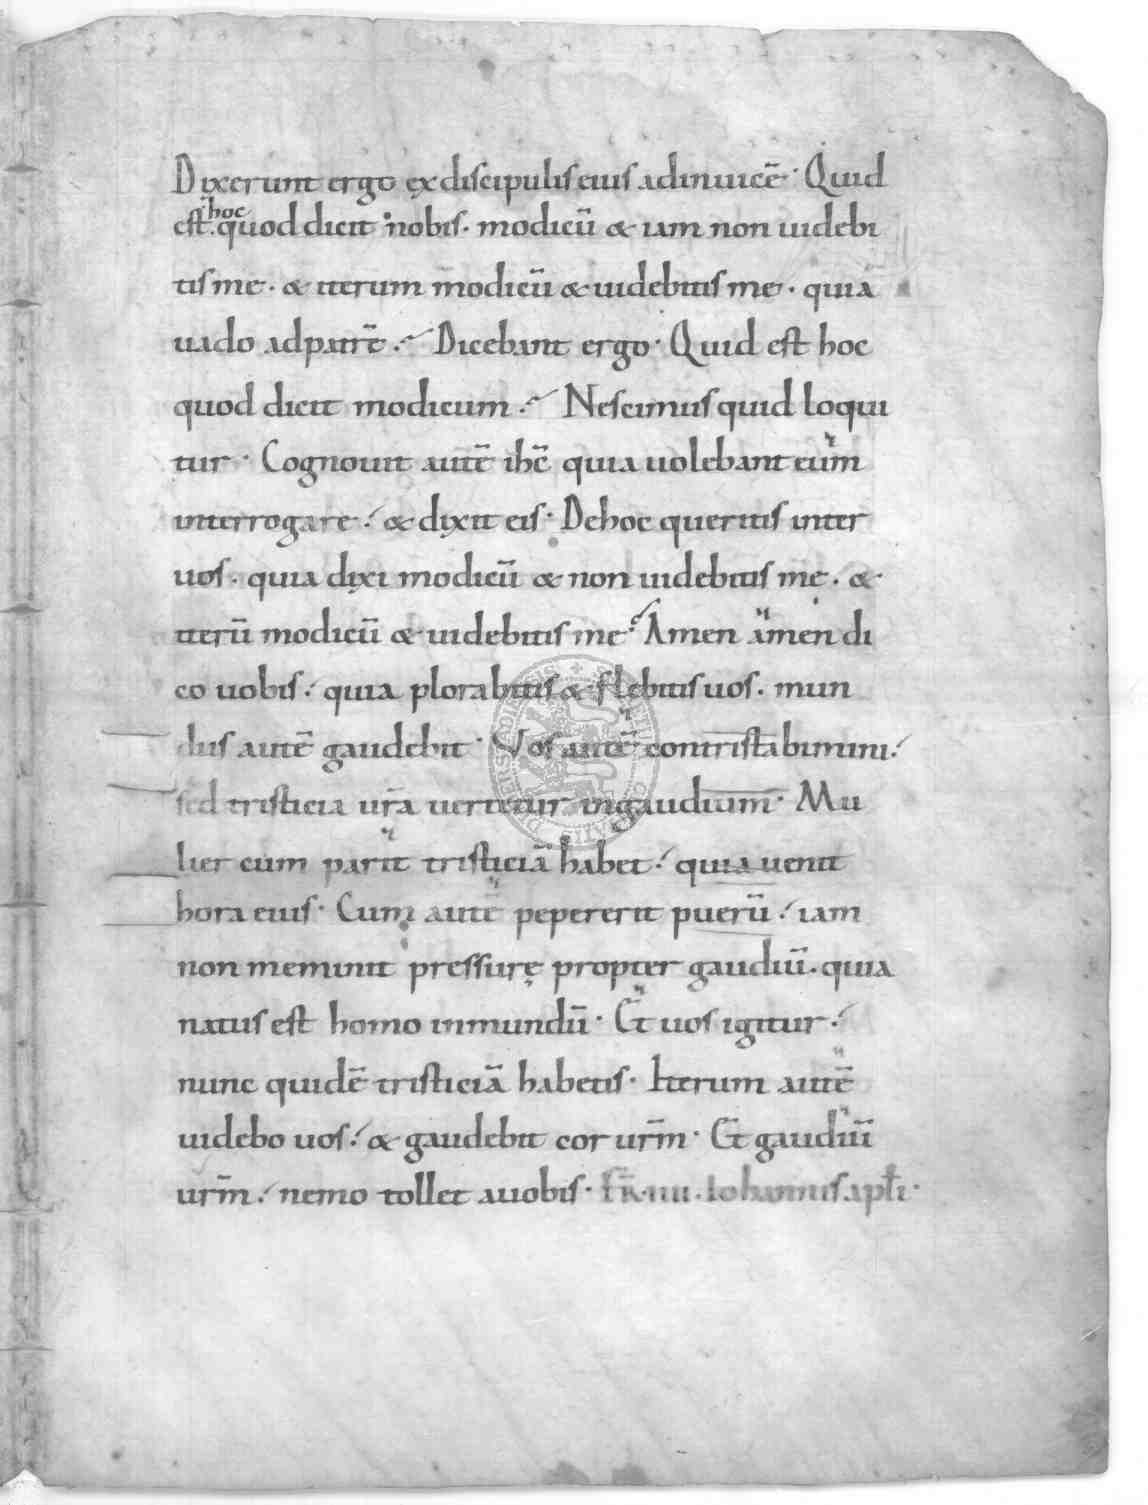 Dixerunt ergo ex discipulis eius adinuicē· Quid
est ħoc quod dicit nobis· modicū & iam non uidebi
tis me· & iterum modicū & uidebitis me· quia
uado ad patrē· Dicebant ergo· Quid est hoc
quod dicit modicum· Nescimus quid loqui
tur· Cognouit autē ihc̄ quia uolebant eum
interrogare· & dixit eis· Dehoc queritis inter
uos· quia dixi modicū & non uidebitis me· &
iterū modicū & uidebitis me· Amen amen di
co uobis· quia plorabitis & flebitis uos· mun
dus autē gaudebit· Vos autē contristabimini·
sed tristicia ur̄a uertetur ingaudium· Mu
lier cum parit tristiciā habet· quia uenit
hora eius· Cum autē pepererit puerū· iam
non meminit pressurę propter gaudiū· quia
natus est homo inmundū· Et uos igitur·
nunc quidē tristiciā habetis· Iterum autē
uidebo uos· & gaudebit cor ur̄m· Et gaudiū
ur̄m· nemo tollet auobis· fr̄· iiii· Iohannis apłi·